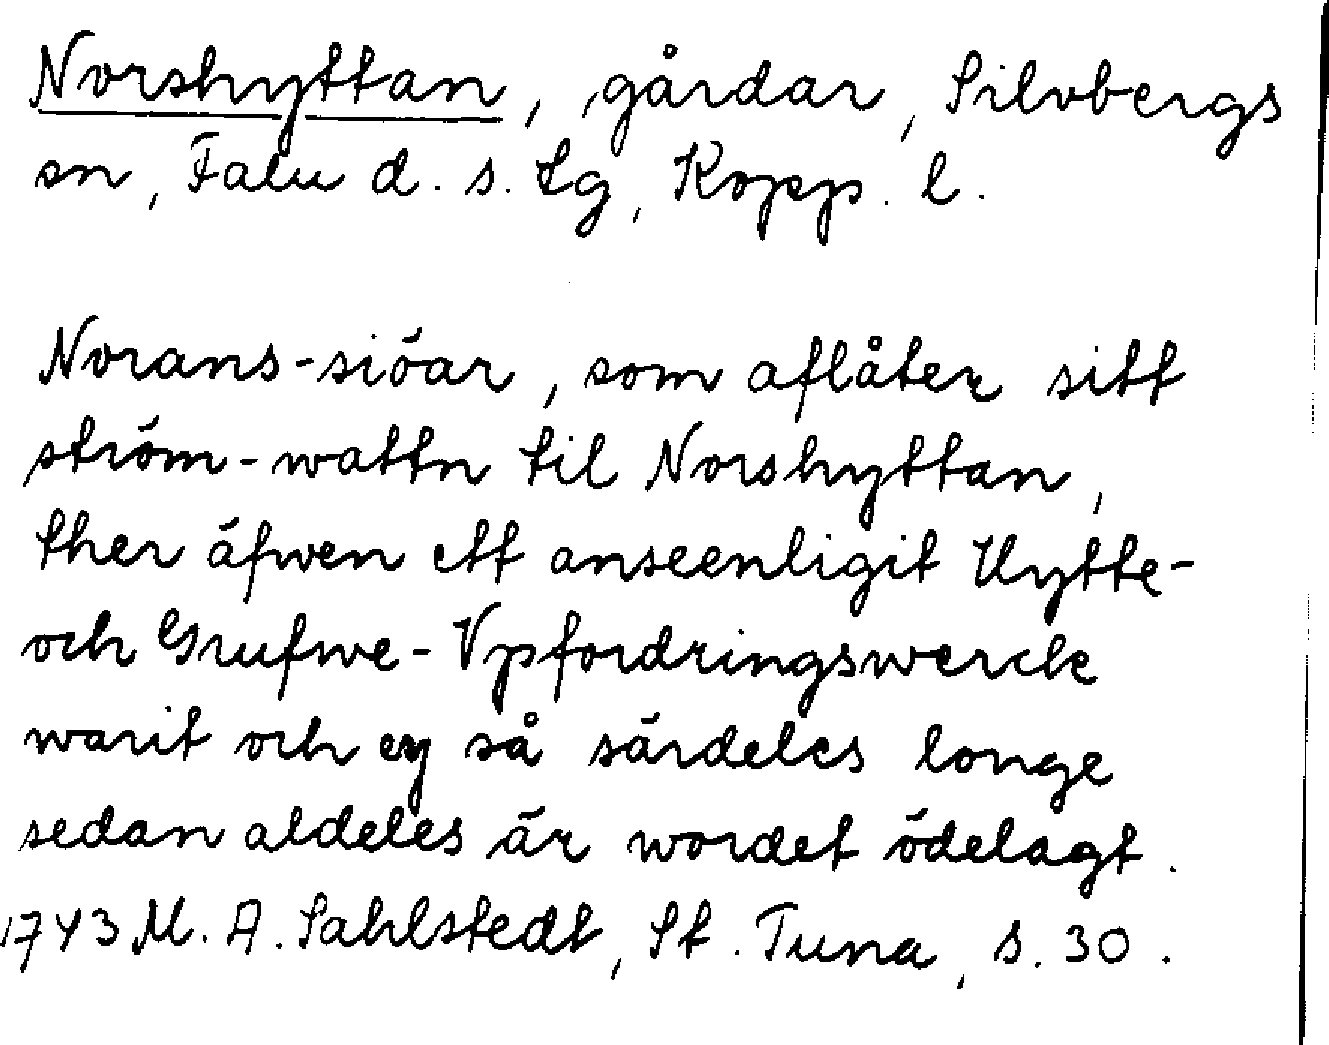 Norshyttan, gårdar, Silvbergs
sn, Falu d. s. tg, Kopp. l.
Norans-siöar, som aflåter sitt
ström-wattn til Norshyttan,
ther äfwen ett anseenligit Hytte-
och Grufwe-Vpfordringswerck
warit och ey så särdeles longe
sedan aldeles är wordet ödelagt.
1743 M. A. Sahlstedt, St. Tuna, s. 30.